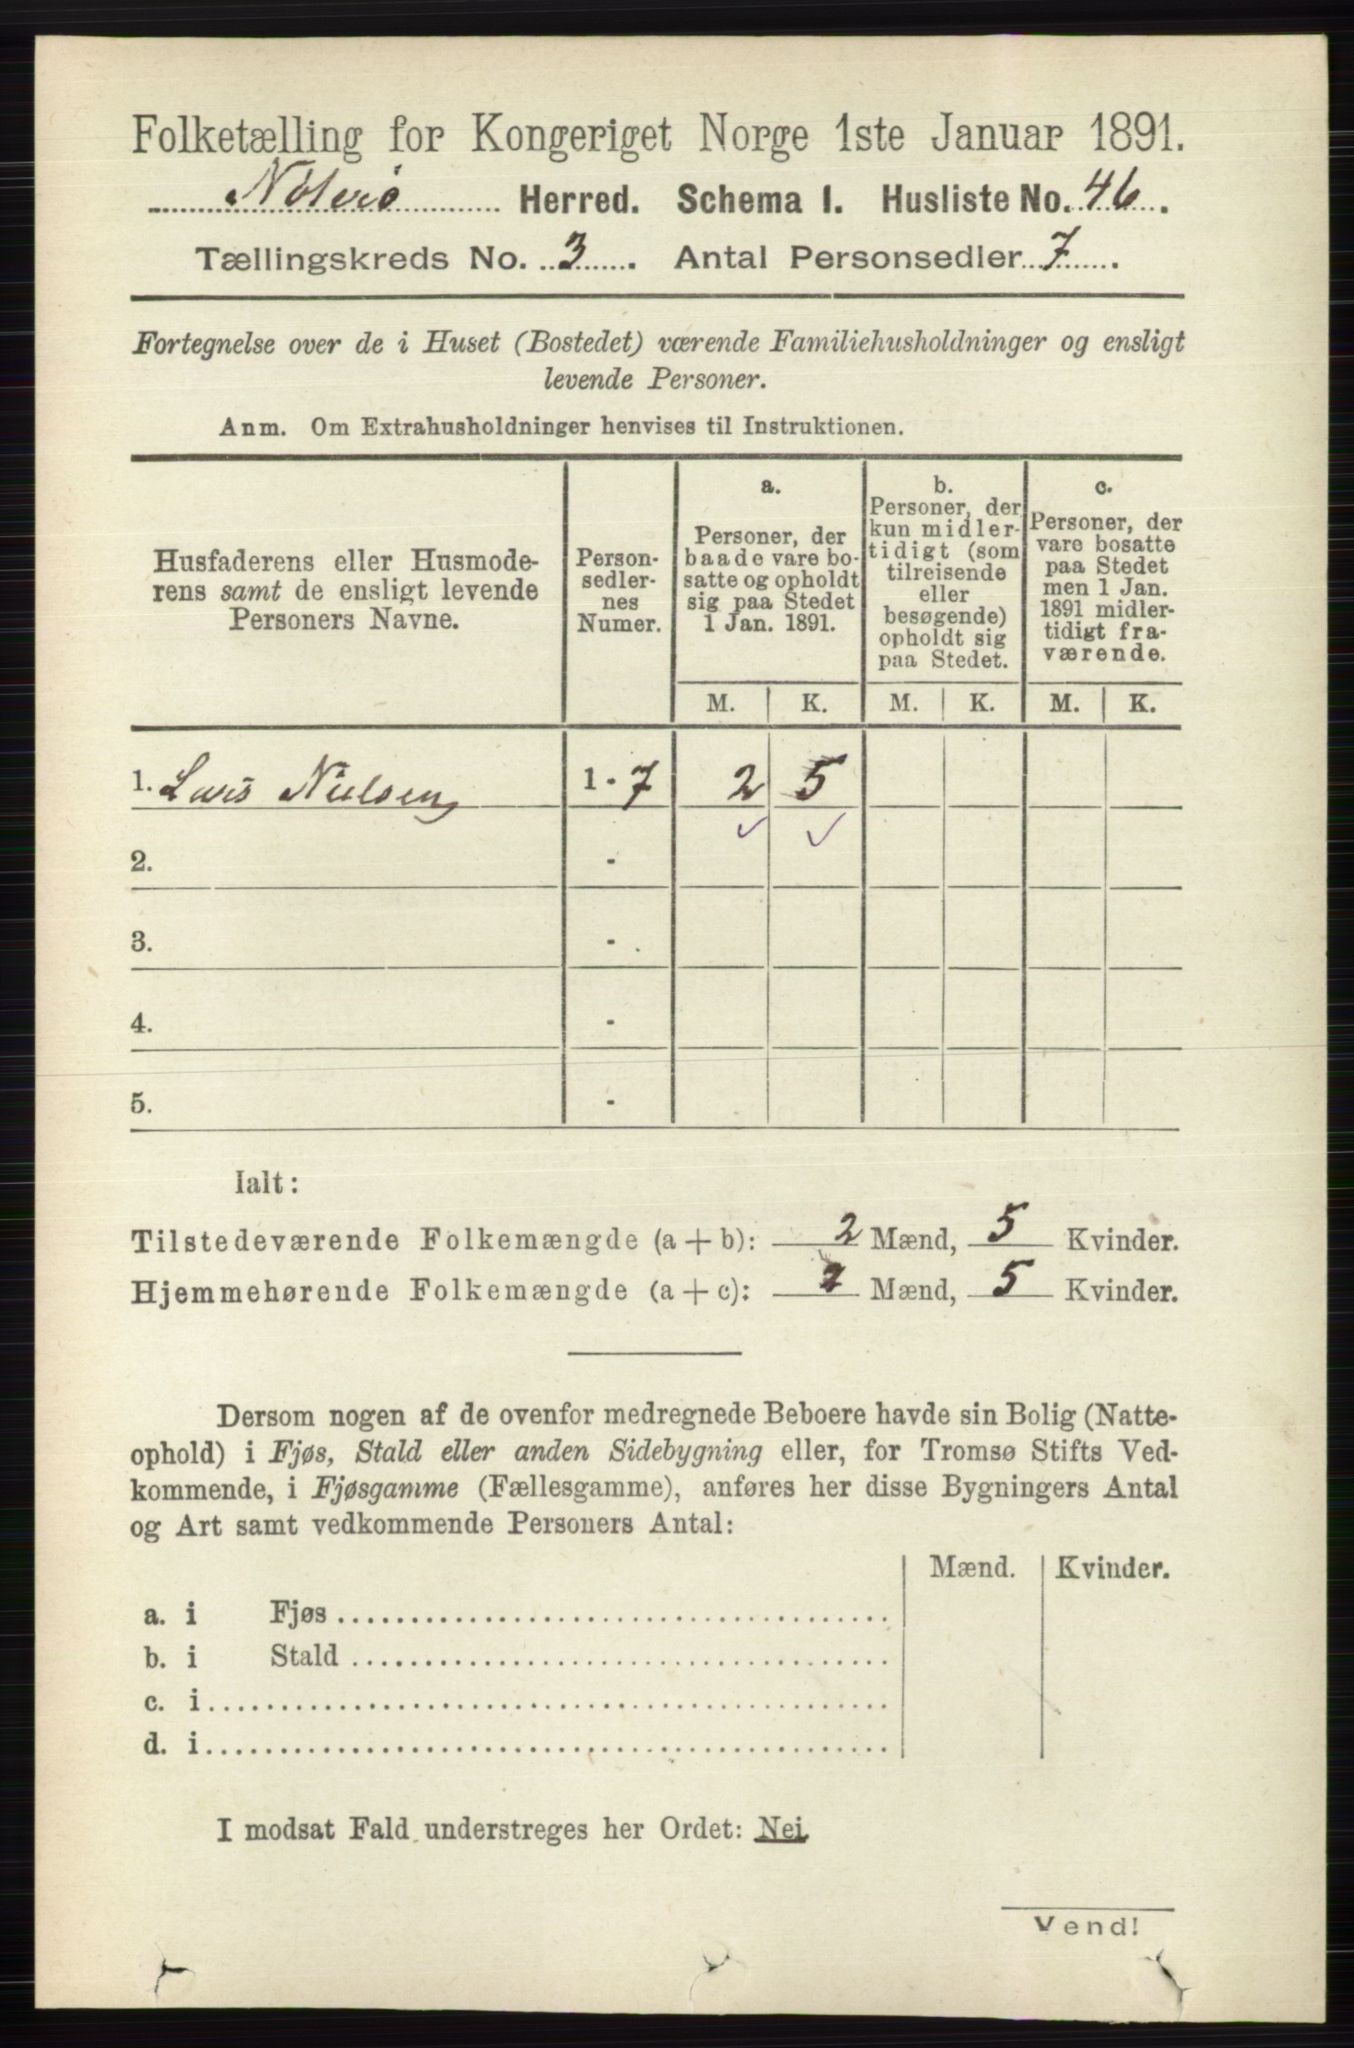 Folketælling for Kongeriget Norge 1ste Januar 1891.
Nöterö Herred. Schema I. Husliste No. 46.
Tællingskreds No. 3. Antal Personsedler 7.
Fortegnelse over de i Huset (Bostedet) værende Familiehusholdninger og ensligt
levende Personer.
Anm. Om Extrahusholdninger henvises til Instruktionen.
Husfaderens eller Husmode-
rens samt de ensligt levende
Personers Navne.
Person-
sedler-
nes
Numer.
a.
Personer, der
baade vare bo-
satte og opholdt
sig paa Stedet
1 Jan. 1891.
b.
Personer, der
kun midler-
tidigt (som
tilreisende
eller
besøgende)
opholdt sig
paa Stedet.
c.
Personer, der
vare bosatte
paa Stedet
men 1 Jan.
1891 midler-
tidigt fra-
værende.
M. K. M. K. M. K.
1. Lars Nielsen 1 - 7 2 5
2. -
3. -
4. -
5. -
Ialt:
Tilstedeværende Folkemængde (a + b): 2 Mænd, 5 Kvinder.
Hjemmehørende Folkemængde (a + c): 2 Mænd, 5 Kvinder.
Dersom nogen af de ovenfor medregnede Beboere havde sin Bolig (Natte-
ophold) i Fjøs, Stald eller anden Sidebygning eller, for Tromsø Stifts Ved-
kommende, i Fjøsgamme (Fællesgamme), anføres her disse Bygningers Antal
og Art samt vedkommende Personers Antal:
Mænd. Kvinder.
a. i Fjøs
b. i Stald
c. i
d. i
I modsat Fald understreges her Ordet: Nei
Vend!